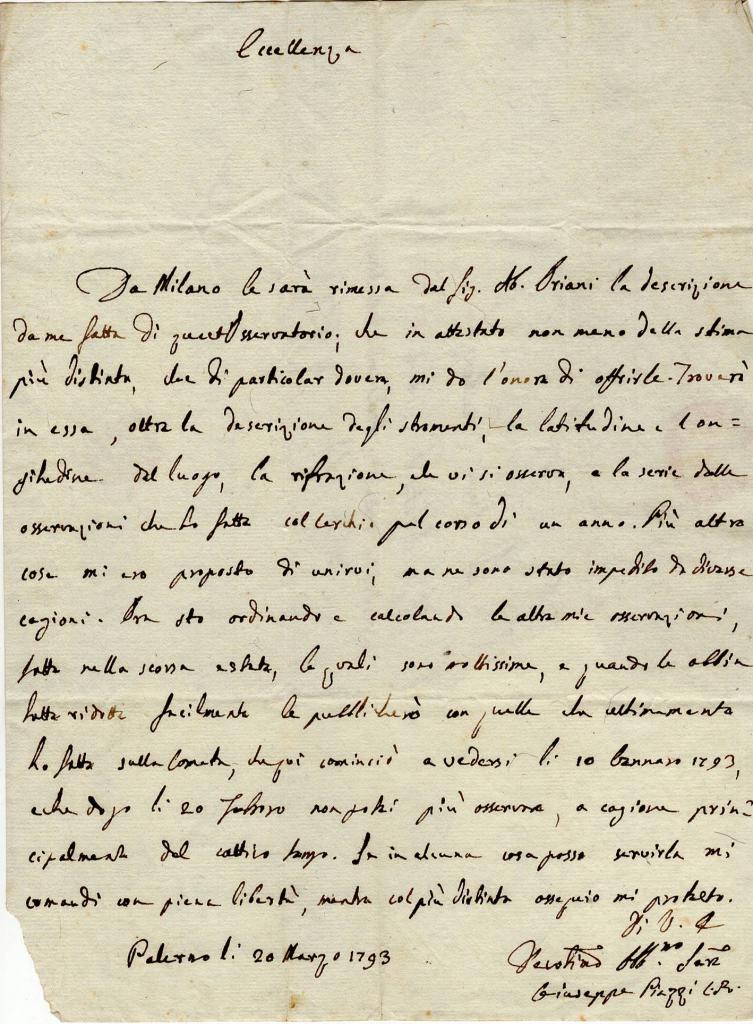 Eccellenza
Da Milano le sarà rimessa dal Sig. Ab. Oriani la descrizione
da me fatta di quest'Osservatorio; che in attestato non meno della stima
più distinta, che di particolar dovere, mi do l'onore di offrirle. Troverà
in essa, oltre la descrizione degli stromenti, la latitudine e lon=
gitudine del luogo, la rifrazione, che vi si osserva, e la serie delle
osservazioni che ho fatte col Cerchio pel corso di un anno. Più altre
cose mi ero proposto di unirvi, ma ne sono stato impedito da diverse
cagioni. Ora sto ordinando e calcolando le altre mie osservazioni,
fatte nella scorsa estate, le quali sono moltissime, e quando le abbia
tutte ridotte facilmente le pubblicherò con quelle che ultimamente
ho fatte sulla Cometa, che qui cominciò a vedersi li 10 Gennaro 1793,
e che dopo li 20 Febbro non potei più osservare, a cagione prin=
cipalmente del cattivo tempo. Se in alcuna cosa posso servirla mi
comandi con piena libertà, mentre col più distinto ossequio mi protesto.
Di V. E
Palermo li 20 Marzo 1793
Devotmo Obb.mo Serv
Giuseppe Piazzi C.R.